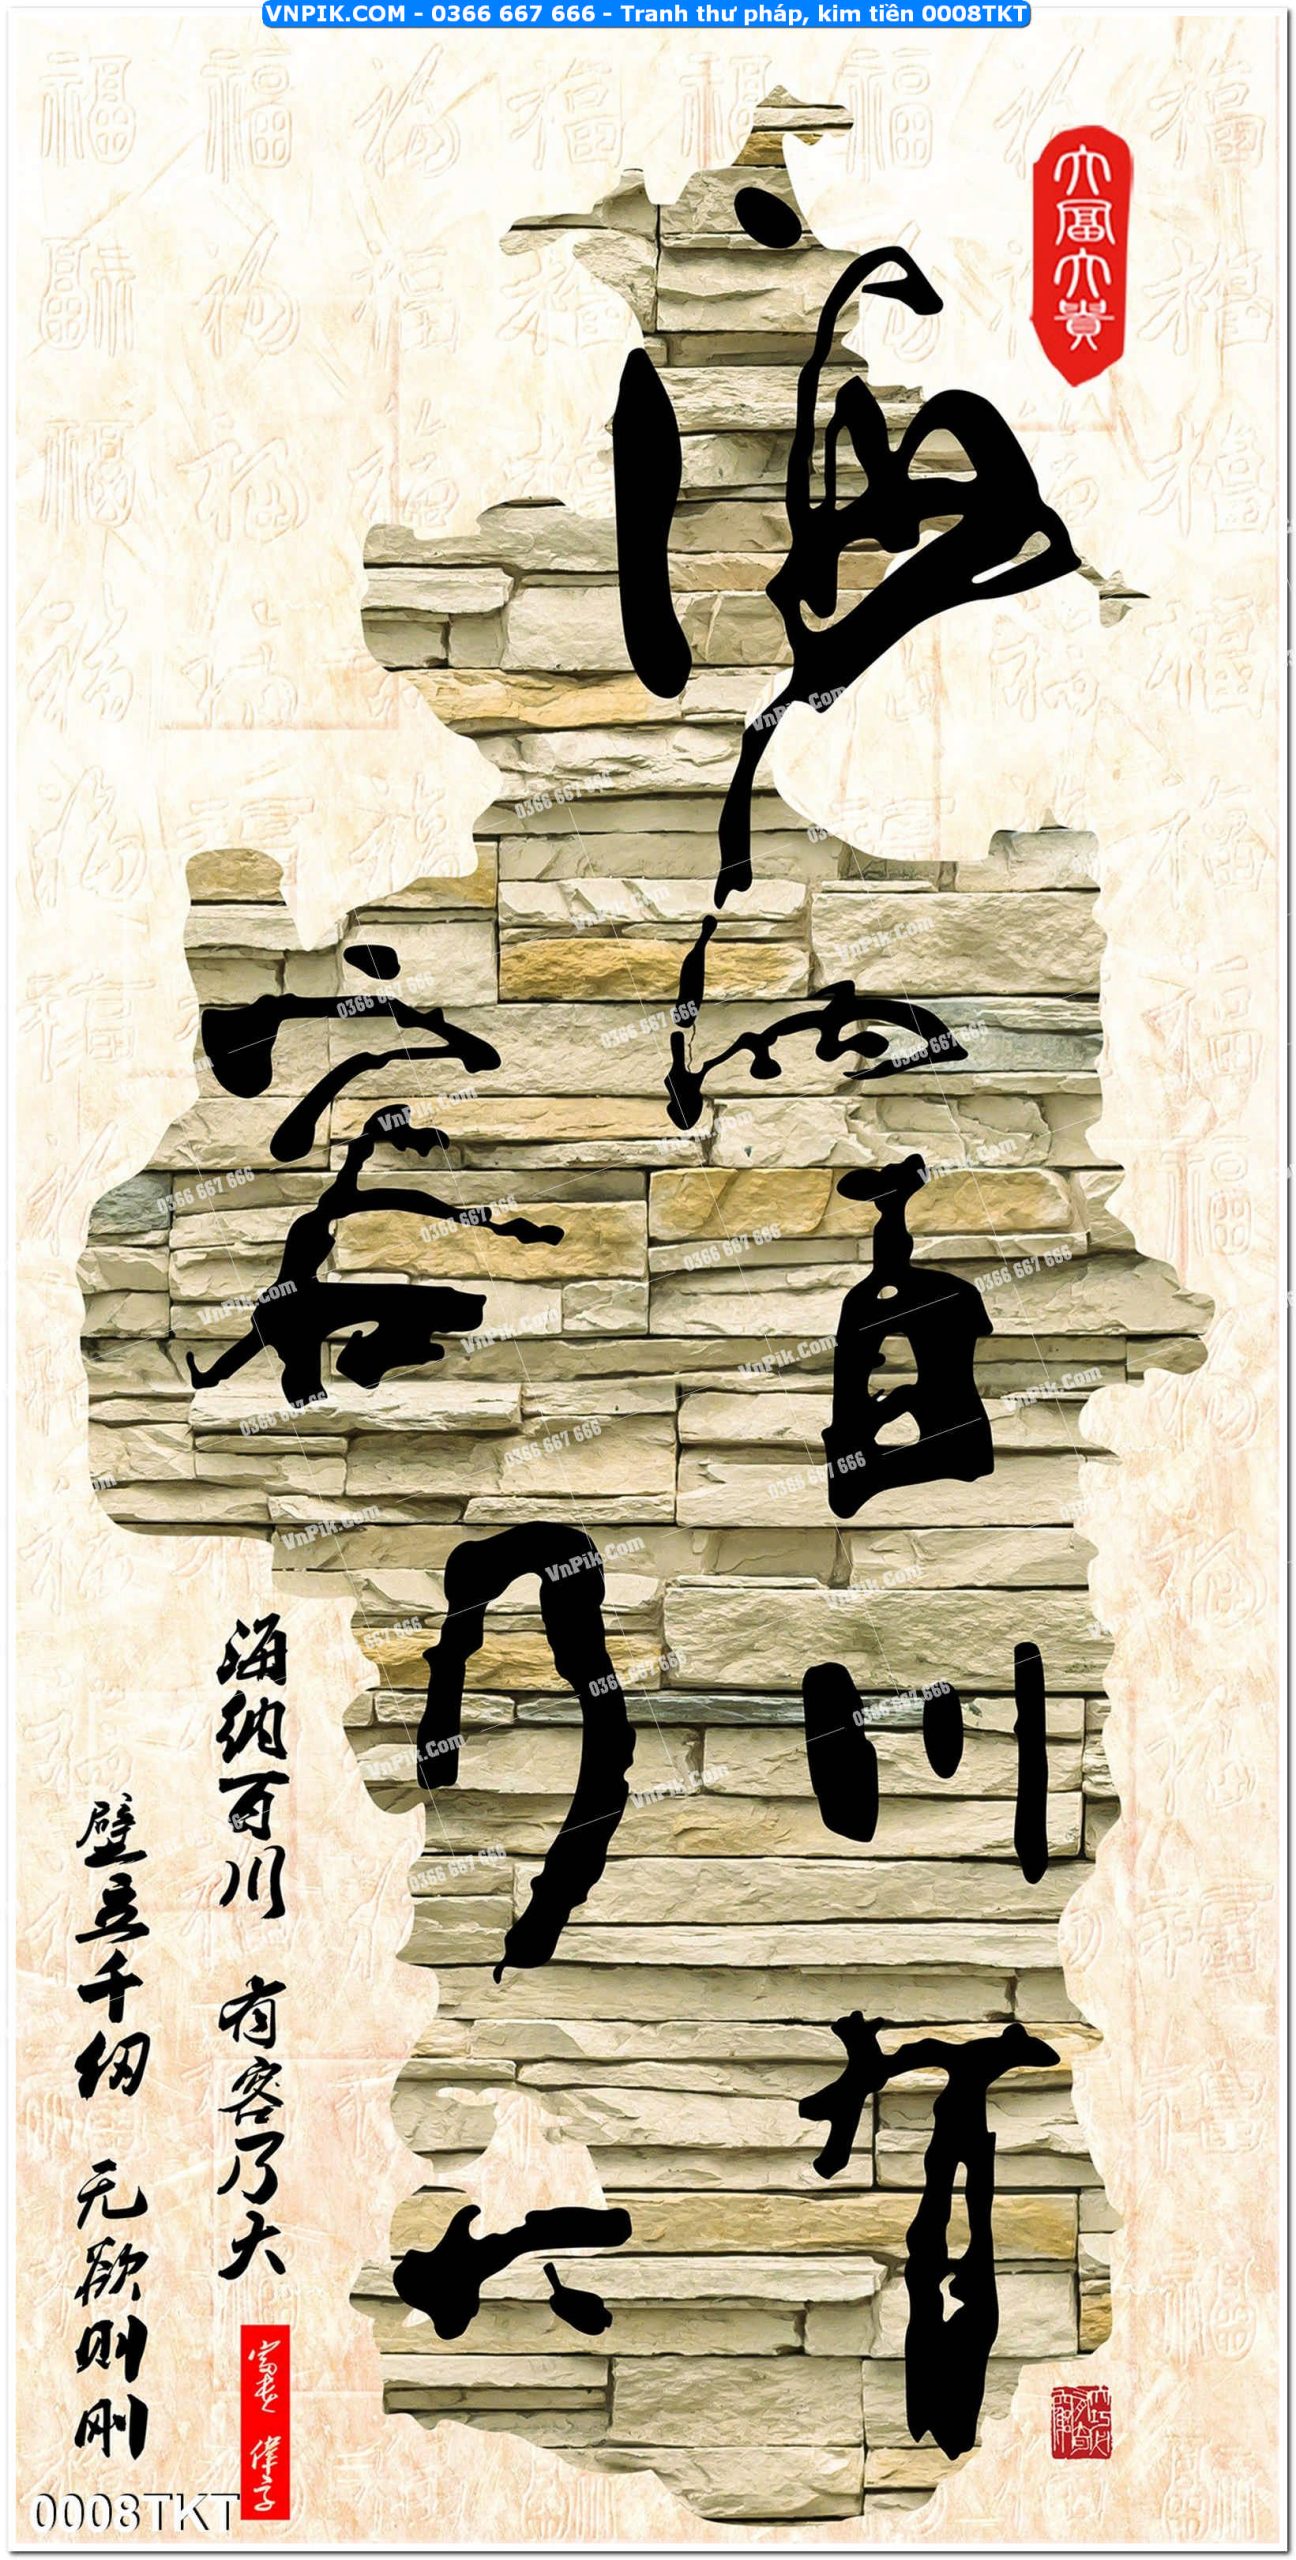 VNPIK.COM - 0366 667 666 - Tranh thư pháp, kim tiền 0008TKT
大富大貴
海納百川有
容乃大
海纳百川 有容乃大
壁立千仞 无欲则刚
0008TKT
VnPik.Com
0366 667 666